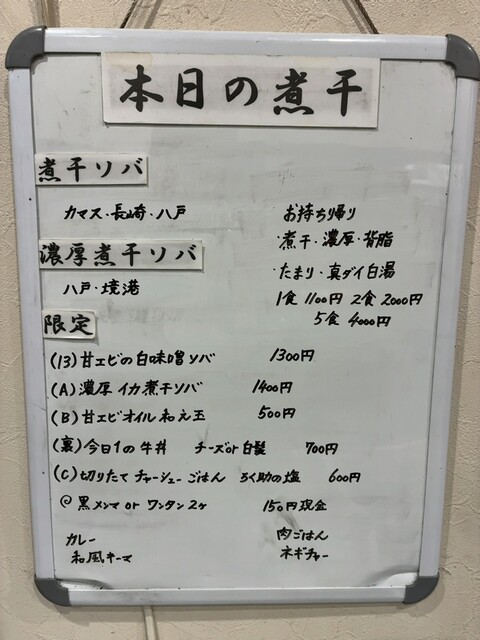 本日の煮干
煮干ソバ
カマス・長崎・八戸
濃厚煮干ソバ
八戸・境港
お持ち帰り
・煮干・濃厚・背脂
・たまり・真ダイ白湯
1食 1100円 2食 2000円
5食 4000円
限定
(13)甘エビの白味噌ソバ 1300円
(A)濃厚イカ煮干ソバ 1400円
(B)甘エビオイル和え玉 500円
(裏)今日1の牛丼 チーズor白髪 700円
(C)切りたてチャーシューごはん ろく助の塩 600円
@黒メンマ or ワンタン2ヶ 150円現金
カレー
和風キーマ
肉ごはん
ネギチャー